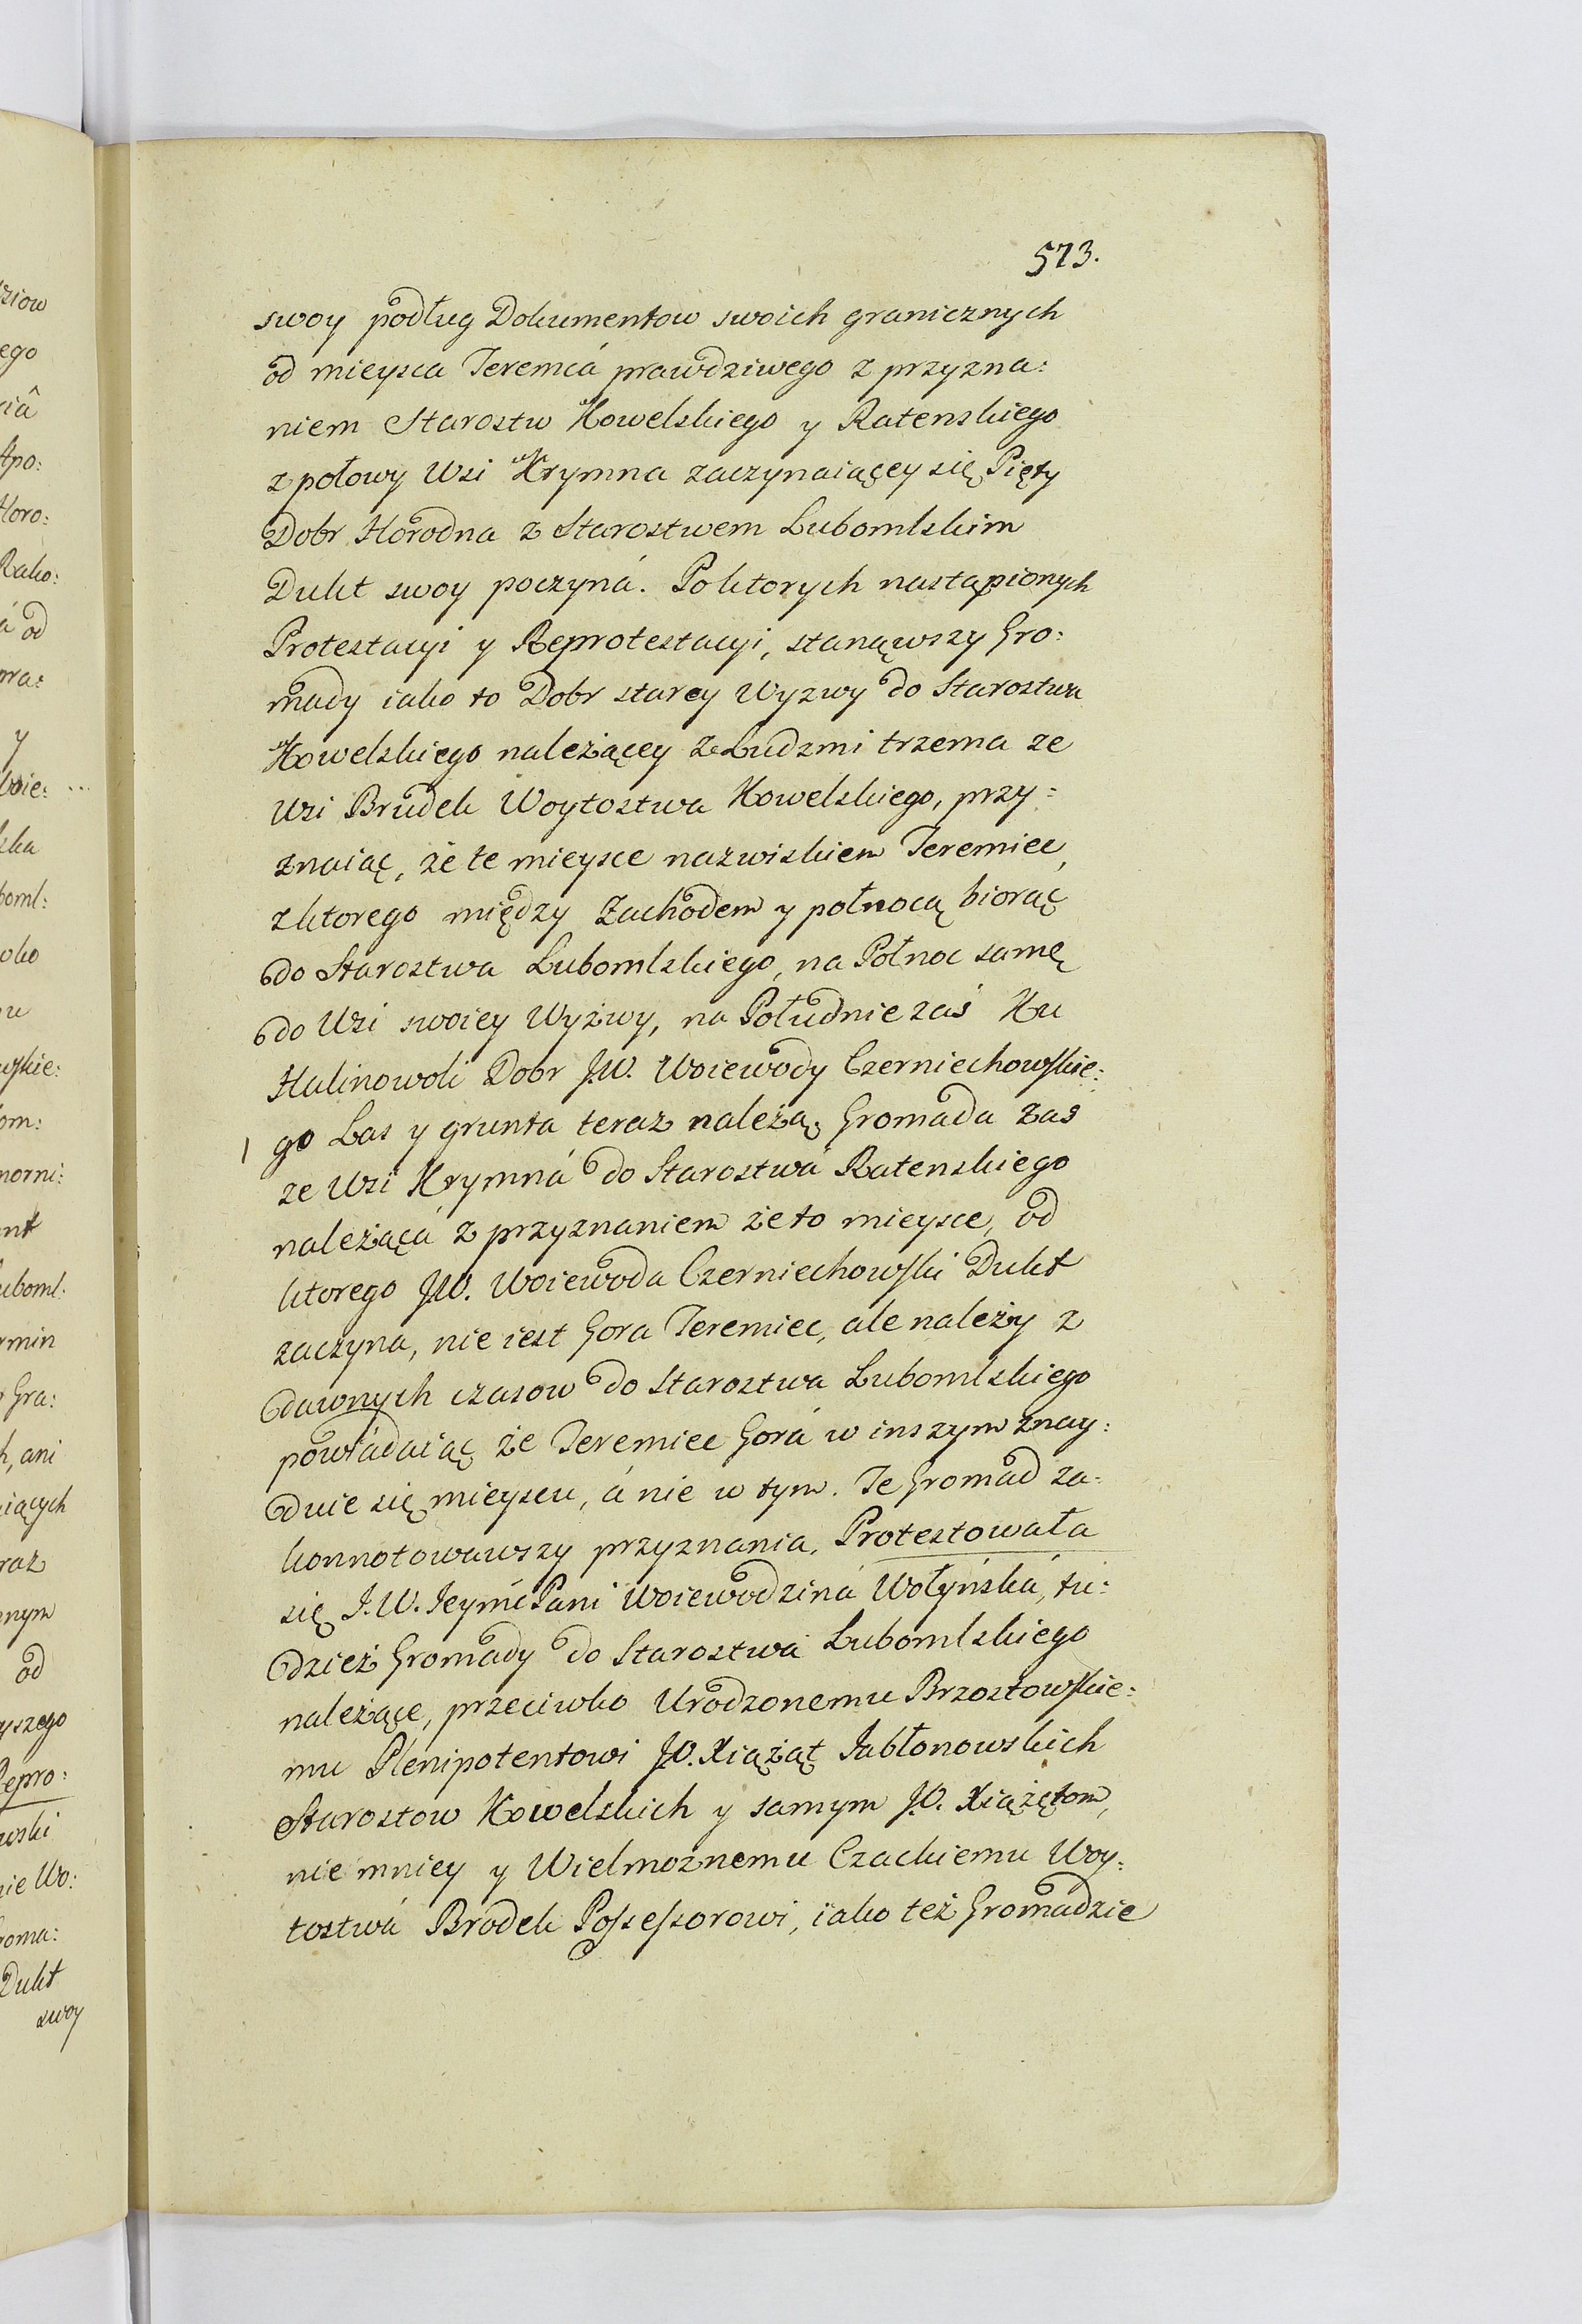 573.
swoy podług Dokumentow swoich granicznych
od mieysca Teremcá prawdziwego z przyzna:
niem Starostw Kowelskiego y Ratenskiego
z połowy Wsi Krymna zaczynaiącey się Pięty
Dobr Horodna z Starostwem Lubomlskim
Dukt swoy poczyná. Po ktorych nastąpionych
Protestacyi y Reprotestacyi, stanąwszy Gro:
mady iako to Dobr starey Wyzwy do Starostwa
Kowelskiego należącey ze Ludzmi trzema ze
Wsi Brudek Woytostwa Kowelskiego, przy:
znaiąc, że te mieysce nazwiskiem Teremiec,
z ktorego między Zachodem y połnocą biorąc
do Starostwa Lubomlskiego, na Połnoc samę
do Wsi swoiey Wyżwy, na Południe zaś Ku
Halinowoli Dobr J.W. Woiewody Czerniechowskie:
go Las y grunta teraz należą. Gromada zaś
ze Wsi Krymná do Starostwá Ratenskiego
należącá z przyznaniem że to mieysce, od
ktorego J.W. Woiewoda Czerniechowski Dukt
zaczyna, nie iest Gora Teremiec, ale należy z
dawnych czasow do Starostwa Lubomlskiego
powiadaiąc że Teremiec Gorá w inszym znay:
duie się mieyscu, á nie w tym. Te Gromad za:
konnotowawszy przyznania, Protestowała
się J.W. Jeymć Pani Woiewodziná Wołyńská, tu:
dzież Gromady do Starostwá Lubomlskiego
należące, przeciwko Urodzonemu Brzostowskie:
mu Plenipotentowi J.O. Xiążąt Jabłonowskich
Starostow Kowelskich y samym J.O. Xiążętom,
nie mniey y Wielmożnemu Czackiemu Woy:
tostwá Brodek Possessorowi, iako też Gromadzie
ziow
ego
iâ
Apo:
Horo:
Rako:
á od
y
woie:
ska
boml:
oko
wskie:
om:
morni:
nt
uboml:
rmin
Gra:
h, ani
iących
raz
nym
od
yszego
Repro:
wski
nie Wo:
roma:
Dukt
swoy